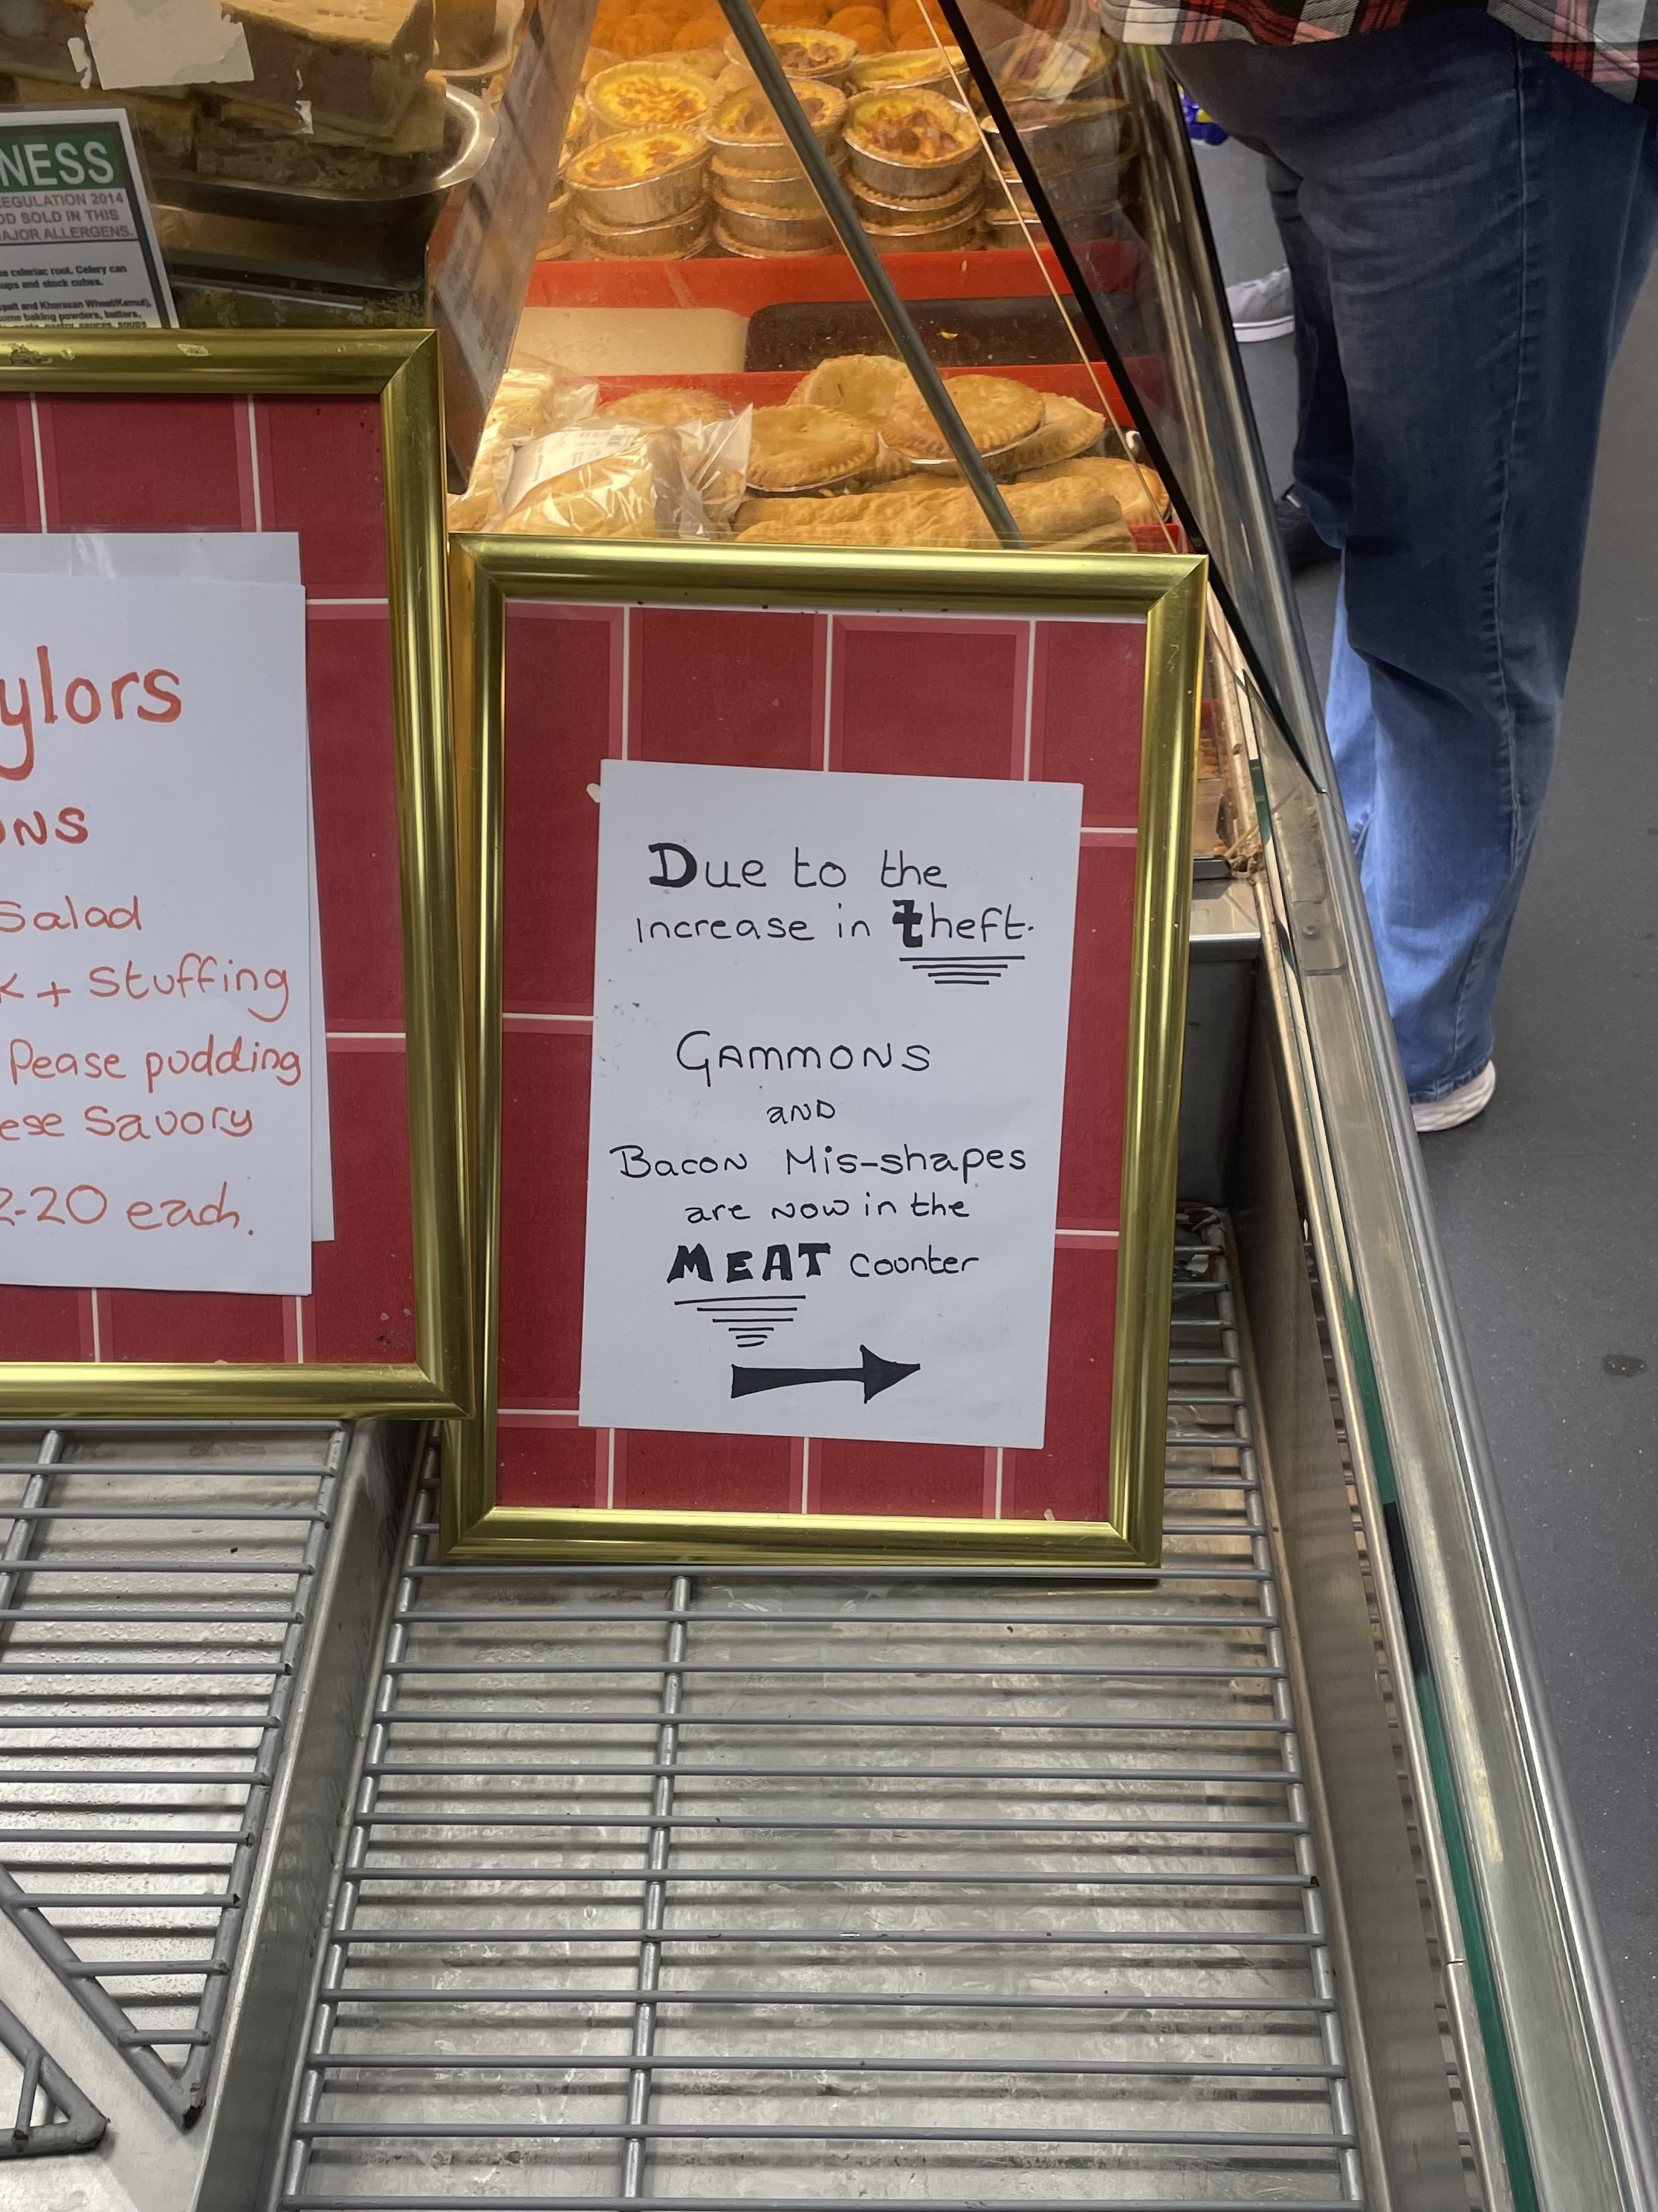 NESS
REGULATION 2014
SOLD IN THIS
MAJOR ALLERGENS.
celeriac root. Celery can
and stock cubes.
and Khorasan Wheat/Kamut),
baking powders, batters,
ylors
ONS
Salad
K + Stuffing
Pease pudding
ese Savory
2-20 each.
Due to the
increase in theft.
GAMMONS
AND
Bacon Mis-shapes
are now in the
MEAT Counter